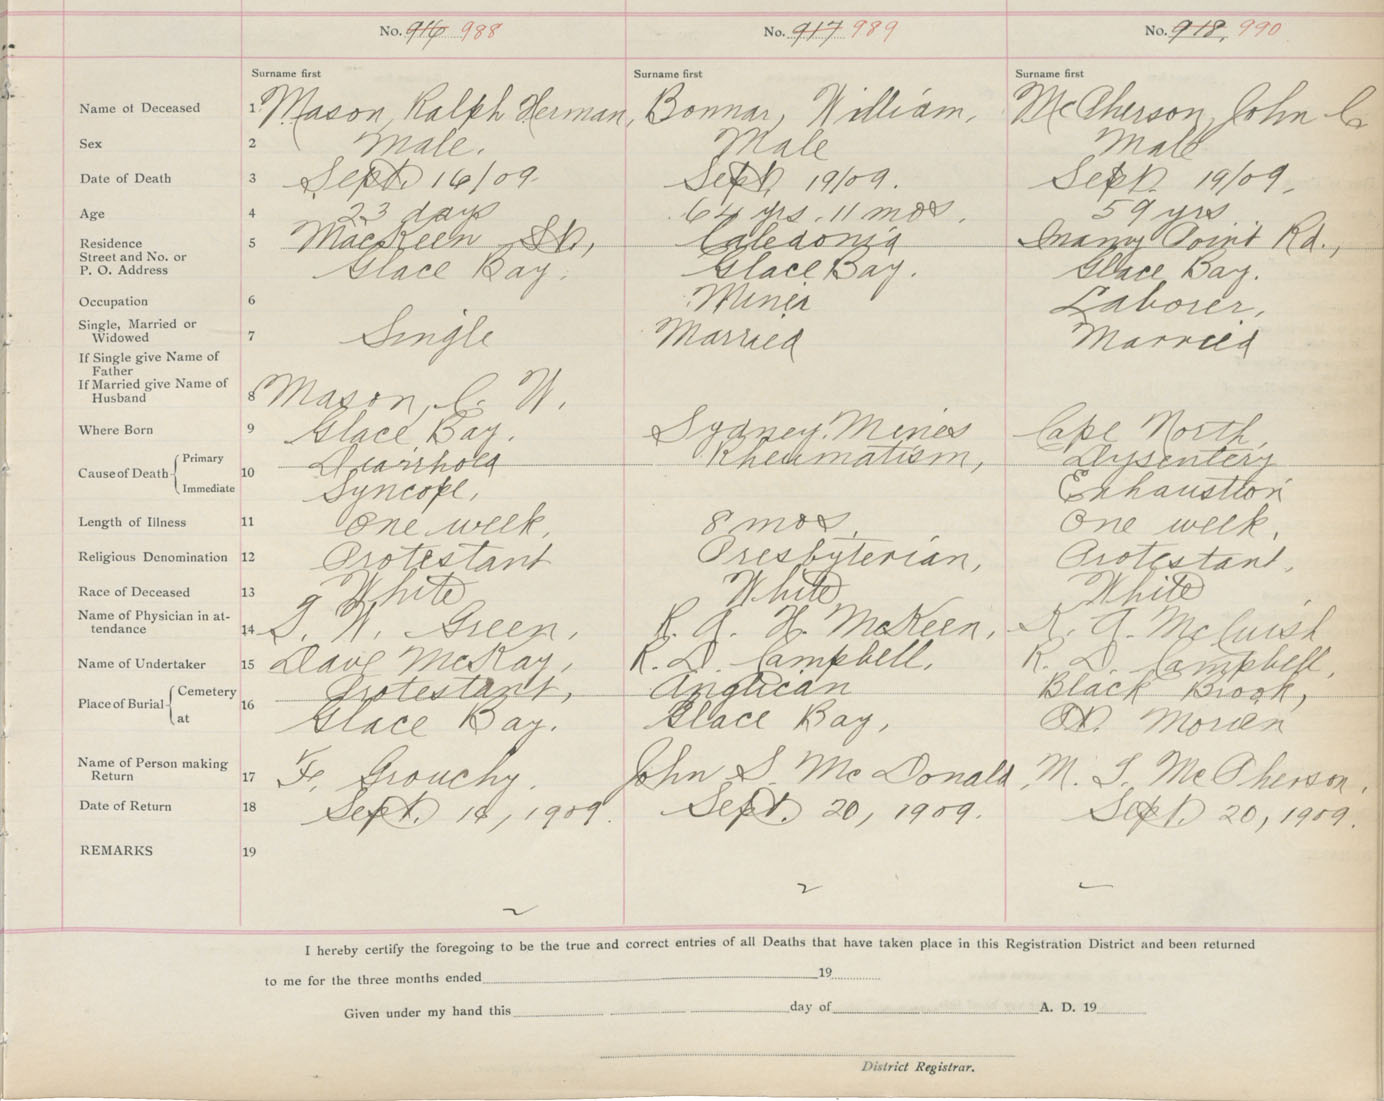 No. 916 988 No. 917 989 No. 918. 990
Surname first Surname first Surname first
Name of Deceased 1 Mason, Ralph Herman, Bonnar, William, McPherson, John C
Sex 2 Male. Male Male
Date of Death 3 Sept. 16/09 Sept. 19/09. Sept. 19/09.
Age 4 23 days 64 yrs. 11 mos. 59 yrs
Residence 5 MacKeen St., Caledonia Point Rd.,
Street and No. or
P. O. Address Glace Bay. Glace Bay. Glace Bay.
Occupation 6 Miner Laborer,
Single, Married or
Widowed 7 Single Married Married
If Single give Name of
Father
If Married give Name of
Husband 8 Mason, C. W.
Where Born 9 Glace Bay. Sydney Mines Cape North,
Cause of Death Primary 10 Diarrhoea Rheumatism, Dysentery
Immediate Syncope, Exhaustion
Length of Illness 11 One week, 8 mos. One week.
Religious Denomination 12 Protestant Presbyterian, Protestant.
Race of Deceased 13 White White White
Name of Physician in at-
tendance 14 W. Green, R. A. H. McKeen, K. A. McCuish
Name of Undertaker 15 Dave McKay, R. D. Campbell, R. D. Campbell.
Place of Burial Cemetery 16 Protestant, Anglican Black Brook,
at Glace Bay. Glace Bay, Pt. Morien
Name of Person making
Return 17 F. Grouchy. John S. McDonald M. J. McPherson.
Date of Return 18 Sept. 16, 1909. Sept. 20, 1909. Sept. 20, 1909.
REMARKS 19
I hereby certify the foregoing to be the true and correct entries of all Deaths that have taken place in this Registration District and been returned
to me for the three months ended 19
Given under my hand this day of A. D. 19
District Registrar.